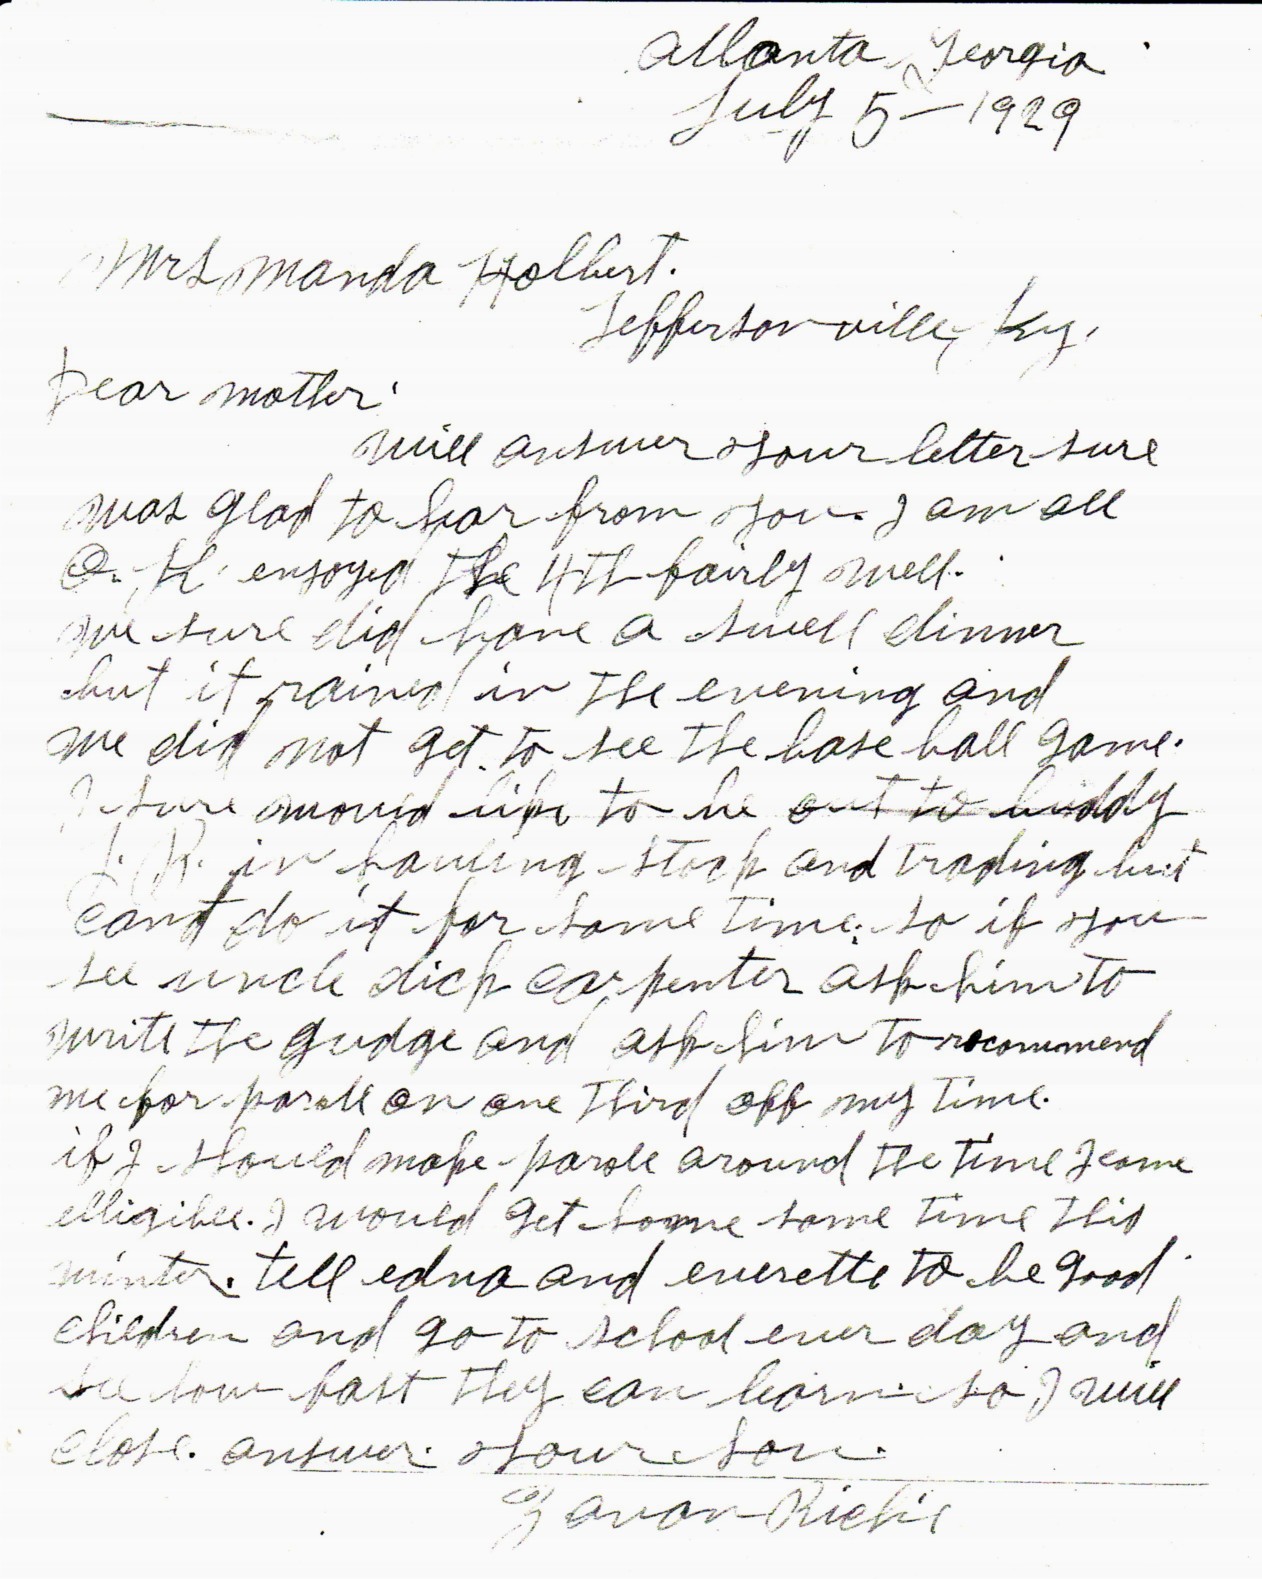 Atlanta Georgia
July 5 - 1929
Mrs Manda Holbert.
Jeffersonville, Ky.
Dear mother'
Will answer your letter sure
was glad to hear from you. I am all
O. K. enjoyed the 4th fairly well.
we sure did have a swell dinner
but it rained in the evening and
we did not get to see the base ball game.
I sure would like to be out to buddy
J. R. in hauling stock and trading but
cant do it for some time. so if you
see uncle dick carpenter ask him to
write the gudge and ask him to recommend
me for parole on one third off my time.
if I should make parole around the time I come
elligible. I would get home some time this
winter. tell edna and everette to be good
children and go to school ever day and
see how fast they can learn. so I will
close. answer. your son.
Richie